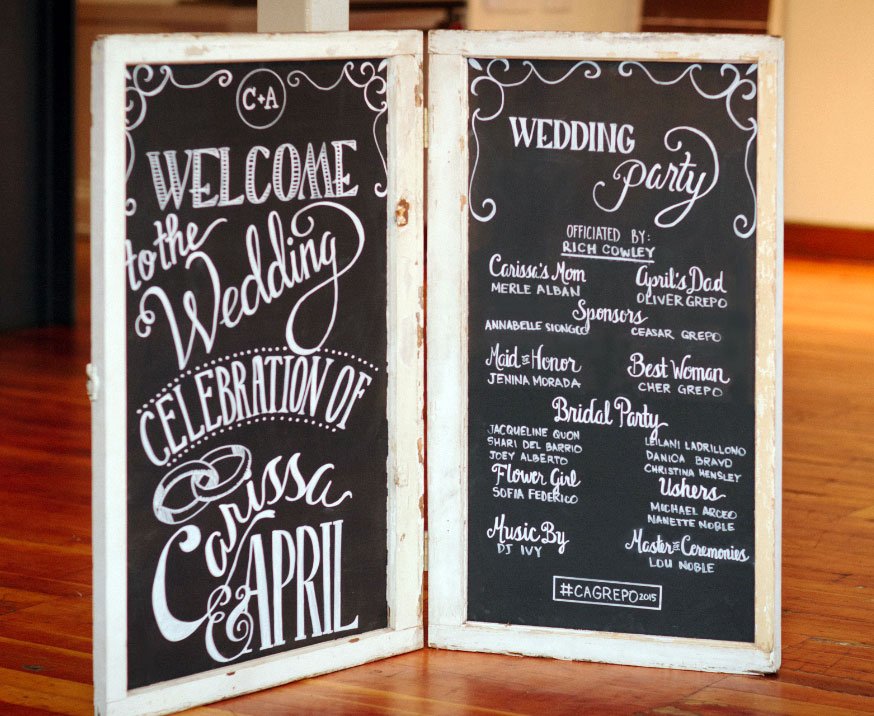 C+A
WELCOME
to the
Wedding
CELEBRATION OF
Carissa
& APRIL
WEDDING
party
OFFICIATED BY:
RICH COWLEY
Carissa's Mom
MERLE ALBAN
April's Dad
OLIVER GREPO
Sponsors
ANNABELLE SIONGCO
CEASAR GREPO
Maid of Honor
JENINA MORADA
Best Woman
CHER GREPO
Bridal Party
JACQUELINE QUON
SHARI DEL BARRIO
JOEY ALBERTO
LEILANI LADRILLONO
DANICA BRAVO
CHRISTINA HENSLEY
Flower Girl
SOFIA FEDERICO
Ushers
MICHAEL ARCEO
NANETTE NOBLE
Music By
DJ IVY
Master of Ceremonies
LOU NOBLE
#CAGREPO2015